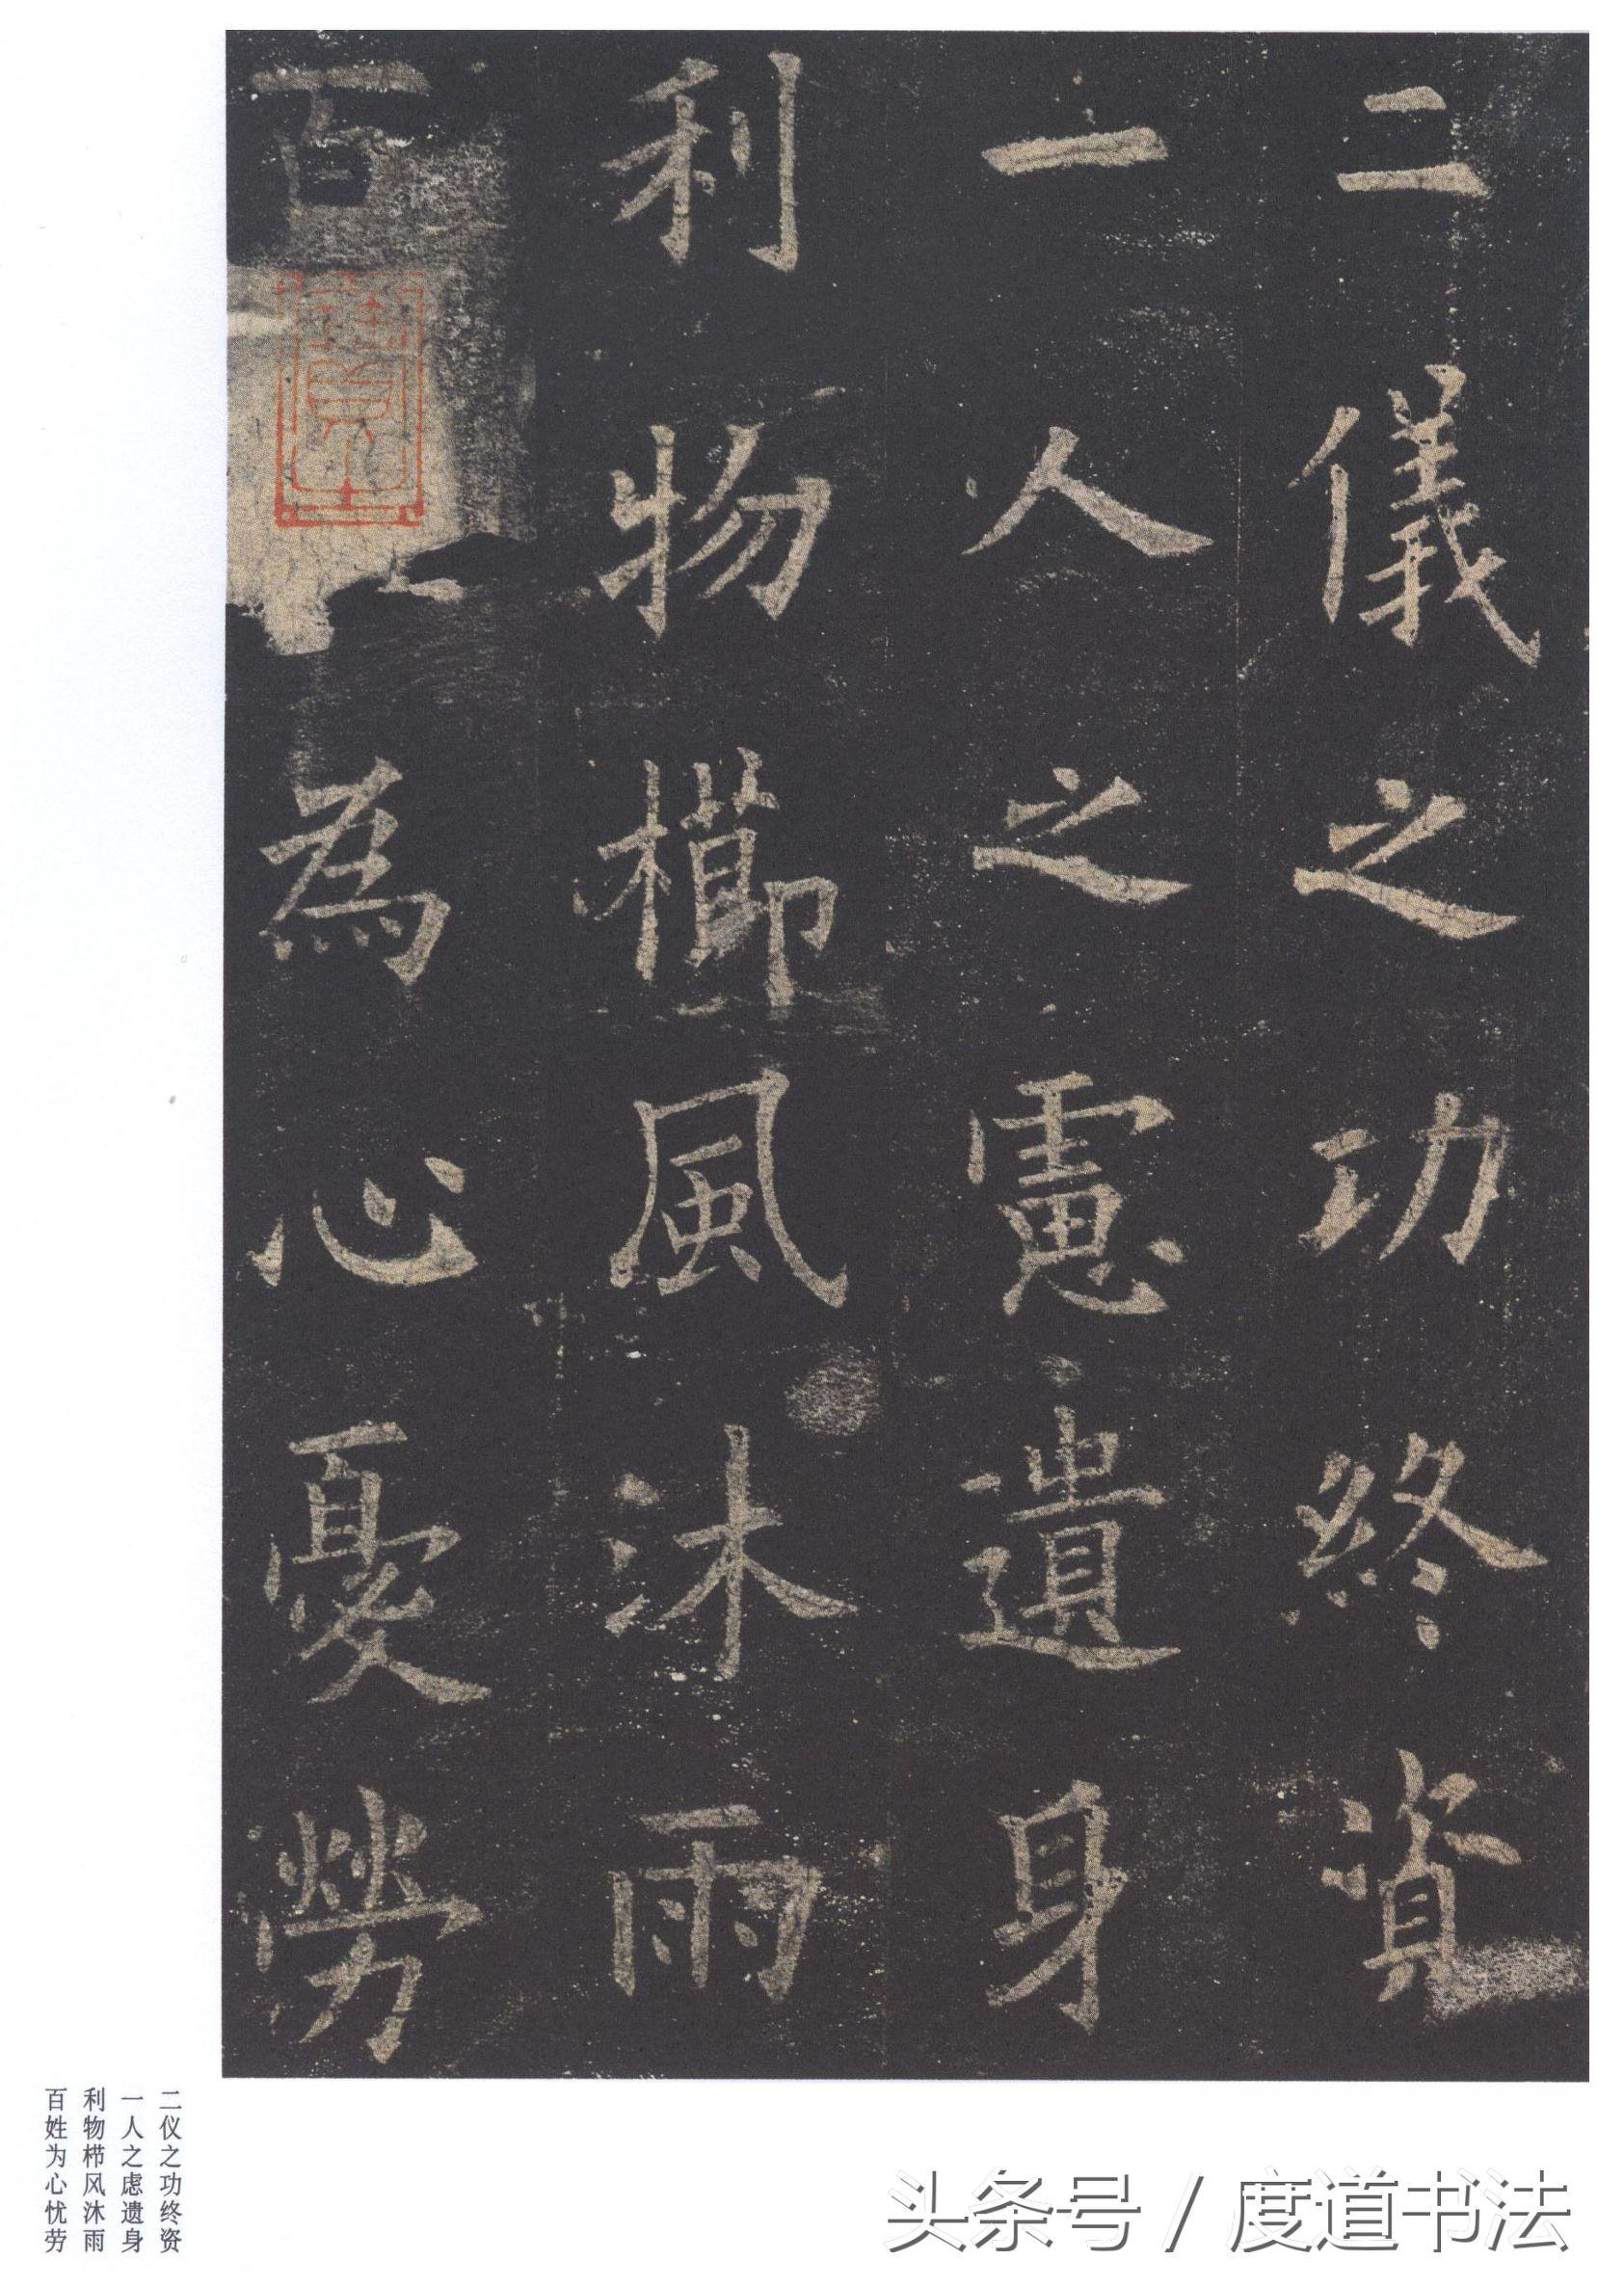 二儀之功終資
一人之慮遺身
利物櫛風沐雨
百
為心憂勞
二仪之功终资
一人之虑遗身
利物栉风沐雨
百姓为心忧劳
头条号 / 度道书法